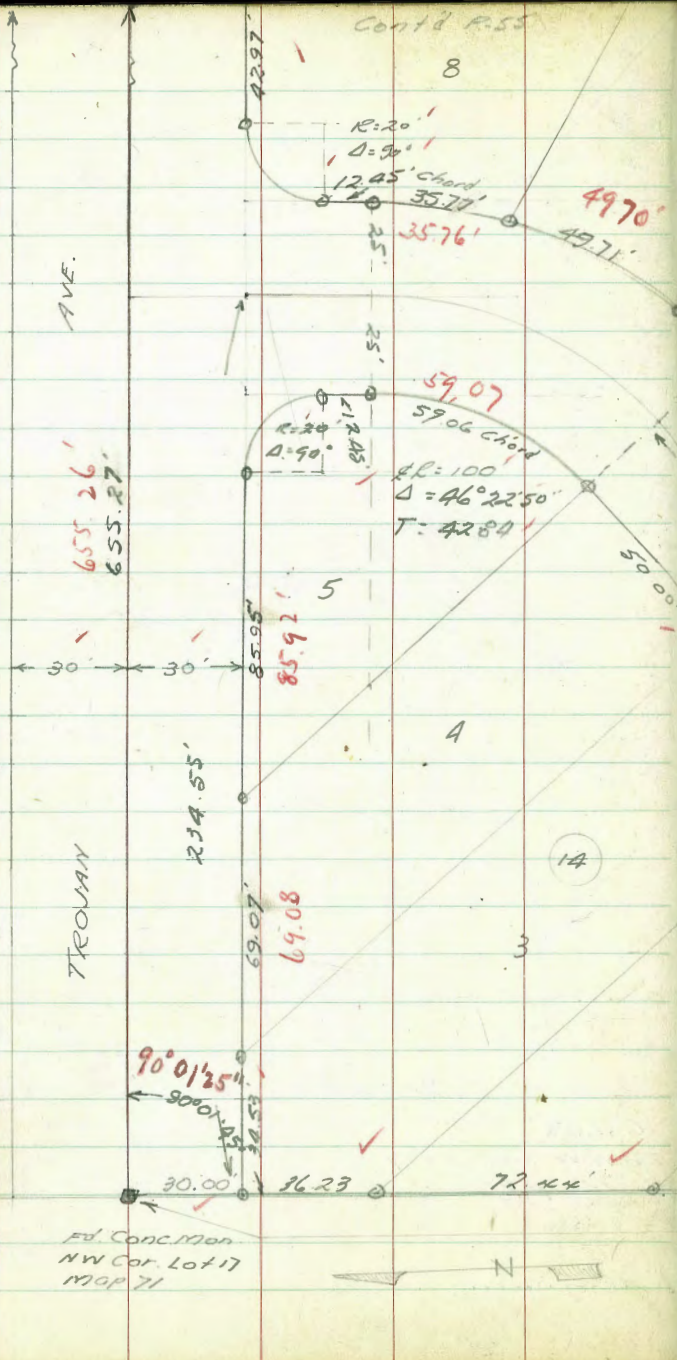 Cont'd P-55
42.97'
8
R=20'
Δ=90°
12.45' Chord
35.77'
35.76'
49.70'
49.71'
25'
25'
AVE.
59.07
59.06 Chord
R=20'
Δ=90°
12.45'
℄R=100'
Δ=46°22'50"
T=42.84
60.00
655.26'
655.27'
5
85.95'
85.92'
30'
30'
4
234.55'
14
TROJAN
69.07'
69.08
3
90°01'25"
34.53'
30.00'
36.23
72.44'
Fd. Conc. Mon
NW Cor. Lot 17
Map 71
N